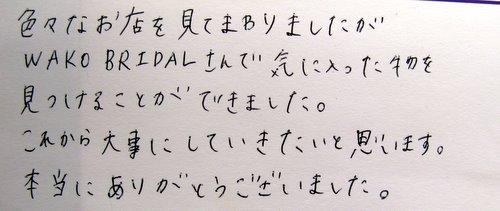 色々なお店を見てまわりましたが
WAKO BRIDALさんで気に入った物を
見つけることができました。
これから大事にしていきたいと思います。
本当にありがとうございました。